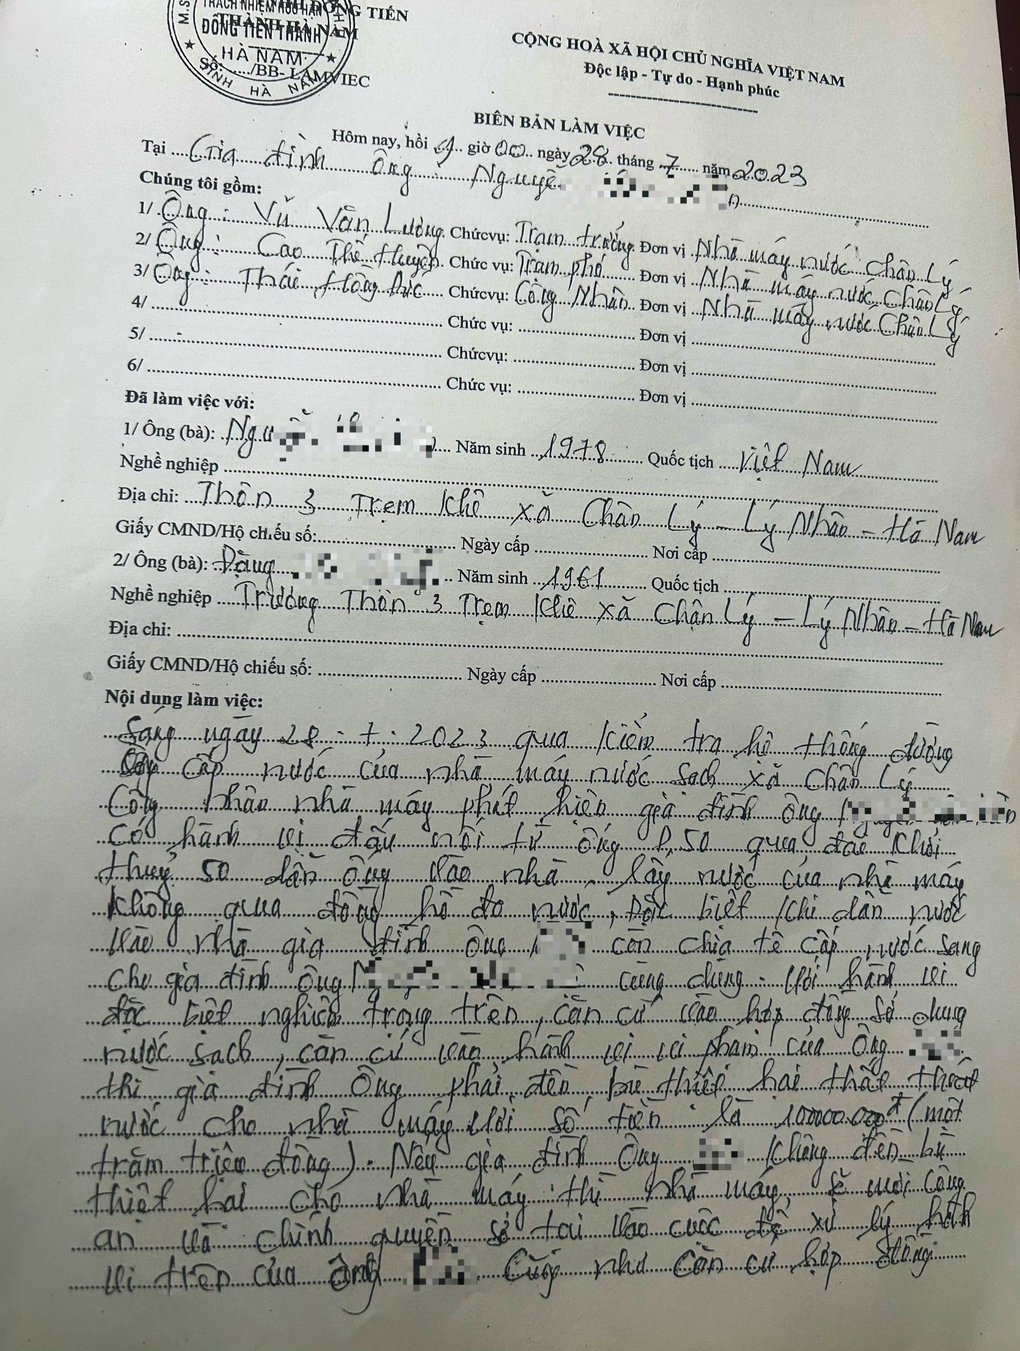 TRÁCH NHIỆM HỮU HẠN
ĐỒNG TIẾN THÀNH
HÀ NAM
TỈNH HÀ NAM
ĐỒNG TIẾN
THÀNH HÀ NAM
Số: ..../BB- LAMVIEC
CỘNG HOÀ XÃ HỘI CHỦ NGHĨA VIỆT NAM
Độc lập - Tự do - Hạnh phúc
BIÊN BẢN LÀM VIỆC
Hôm nay, hồi giờ 00 ngày 28 tháng 7 năm 2023
Tại Gia đình Ông: Nguyễ
Chúng tôi gồm:
1/ Ông: Vũ Văn Lương Chứcvụ: Trạm trưởng Đơn vị Nhà máy nước Chân Lý
2/ Ông: Cao Thế Huyện Chức vụ: Trạm phó Đơn vị Nhà máy nước Chân Lý
3/ Ông: Thái Hồng Đức Chức vụ: Công Nhân Đơn vị Nhà máy nước Chân Lý
4/ Chức vụ: Đơn vị
5/ Chứcvụ: Đơn vị
6/ Chức vụ: Đơn vị
Đã làm việc với:
1/ Ông (bà): Ngu Năm sinh 1978 Quốc tịch Việt Nam
Nghề nghiệp
Địa chỉ: Thôn 3 Trẹm Khê xã Chân Lý - Lý Nhân - Hà Nam
Giấy CMND/Hộ chiếu số: Ngày cấp Nơi cấp
2/ Ông (bà): Đặng Năm sinh 1961 Quốc tịch
Nghề nghiệp Trưởng Thôn 3 Trẹm Khê xã Chân Lý - Lý Nhân - Hà Nam
Địa chỉ:
Giấy CMND/Hộ chiếu số: Ngày cấp Nơi cấp
Nội dung làm việc:
Sáng ngày 28 - 7 - 2023 qua kiểm tra hệ thống đường
ống cấp nước của nhà máy nước sạch xã Chân Lý
Công nhân nhà máy phát hiện gia đình ông
có hành vi đấu nối từ ống P.50 qua đai khởi
thuỷ 50 dẫn ống vào nhà, lấy nước của nhà máy
không qua đồng hồ đo nước, Đặc biệt khi dẫn nước
vào nhà gia đình ông còn chia tê cấp nước sang
cho gia đình ông cùng dùng. Với hành vi
đặc biệt nghiêm trọng trên, căn cứ vào hợp đồng sử dụng
nước sạch, căn cứ vào hành vi vi phạm của Ông
thì gia đình Ông phải đền bù thiệt hại thất thoát
nước cho nhà máy với số tiền là 100.000.000đ (một
trăm triệu đồng). Nếu gia đình Ông không đền bù
thiệt hại cho nhà máy thì nhà máy sẽ mời công
an và chính quyền sở tại vào cuộc để xử lý hành
vi trên của ông Cũng như căn cứ hợp đồng